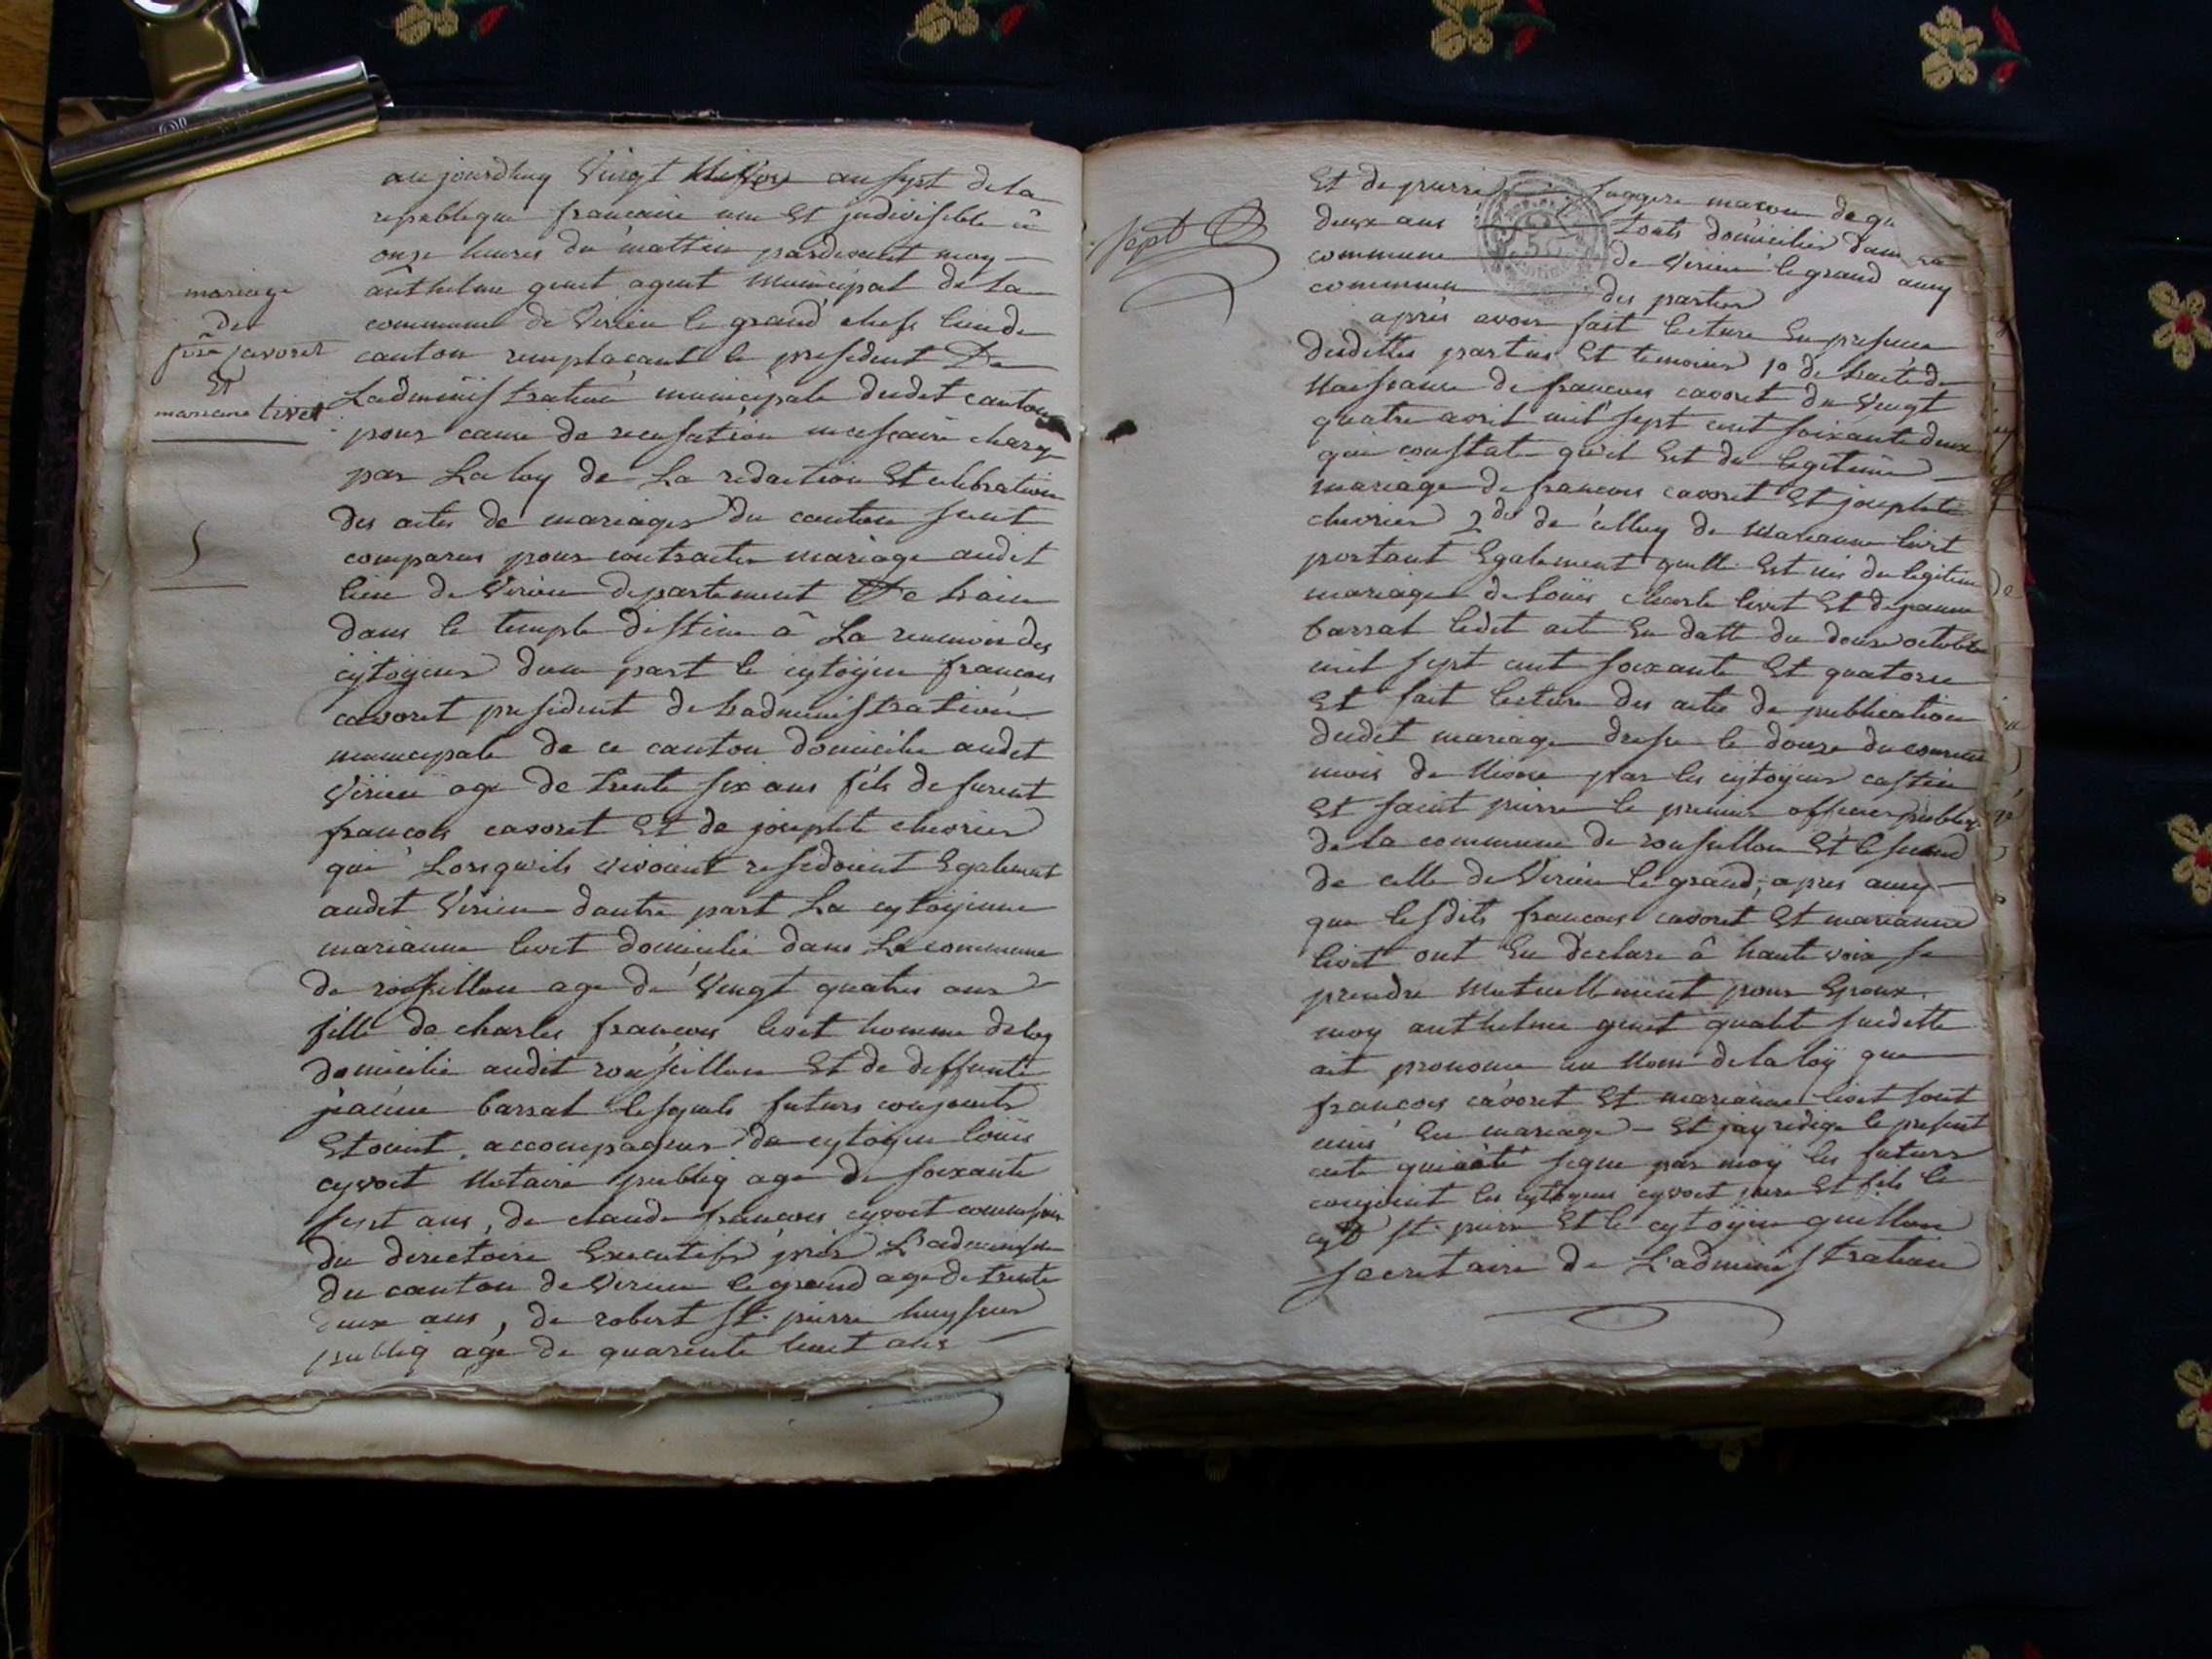 aujourdhuy Vingt Nivose an sept de la
republique francaise une Et judivisible â
onze heures du mattin pardevant moy
anthelme genet agent municipal de la
commune de Virieu le grand chefs lieu de
canton remplaçant le president De
Ladministration municipale dudet canton
pour cause de recusation necessaire charge
par La loy de La redaction Et celebration
des actes de mariages du canton sont
comparus pour contracter mariage audit
lieu de Virieu departement De Lain
dans le temple destine â La reunion des
cytoyens dune part le cytoyen francois
cavoret president de Ladministration
municipale de ce canton domicilie audet
Virieu age de trente six ans fils de furent
francois cavoret Et de josephte chevrier
qui Lorsqu'ils vivoient residoient Egalement
audet Virieu dautre part La cytoyenne
marianne livet domicilie dans La commune
de rossillon age de Vingt quatres ans
fille de charles francois livet homme de loy
domicilie audit rossillon Et de deffunte
jeanne barral lesquels futurs conjoints
Etoient accompagnes du cytoyen louis
cyvoct Notaire publiq age de soixante
sept ans, de claude francois cyvoct commissaire
du directoire Executif près L'administn
du canton de Virieu le grand age de trente
deux ans, de robert st. pierre huyssier
publiq age de quarente huit ans
mariage
de
fois cavoret
Et
mariane livet
5
sept
Et de pierre suggere macon dage
deux ans touts domicilies dans la
commune de Virieu le grand amy
commun des parties
après avoir fait lecture En presence
desdettes parties Et temoins 1o de Lacte de
Naissance de francois cavoret du Vingt
quatre avril mil sept cent soixante deux
qui constate qu'il Est du legitime
mariage de francois cavoret Et josephte
chevrier 2do de celluy de Marianne livet
portant Egalement quelle Est née du legitime
mariage de louis charle livet Et de jeanne
barral ledit acte En datte du douze octobre
mil sept cent soixante Et quatorze
Et fait lecture des acte de publication
dudet mariage dresse le douze du courant
mois de Nivose par les cytoyens castin
Et saint pierre le premier officier publiq
de la commune de rossillon Et le second
de celle de Virieu le grand; apres aussy
que lesdits francois cavoret Et marianne
livet ont Eu declare â haute voix se
prendre Mutuellement pour Epoux.
moy anthelme genet qualite susdette
ait prononce au Nom de la loy que
francois cavoret Et marianne livet sont
unis En mariage - Et jay redige le present
acte qui a été signe par moy les futurs
conjoint les cytoyens cyvoct pere Et fils le
cyt st. pierre Et le cytoyen guillon
secretaire de L'administration